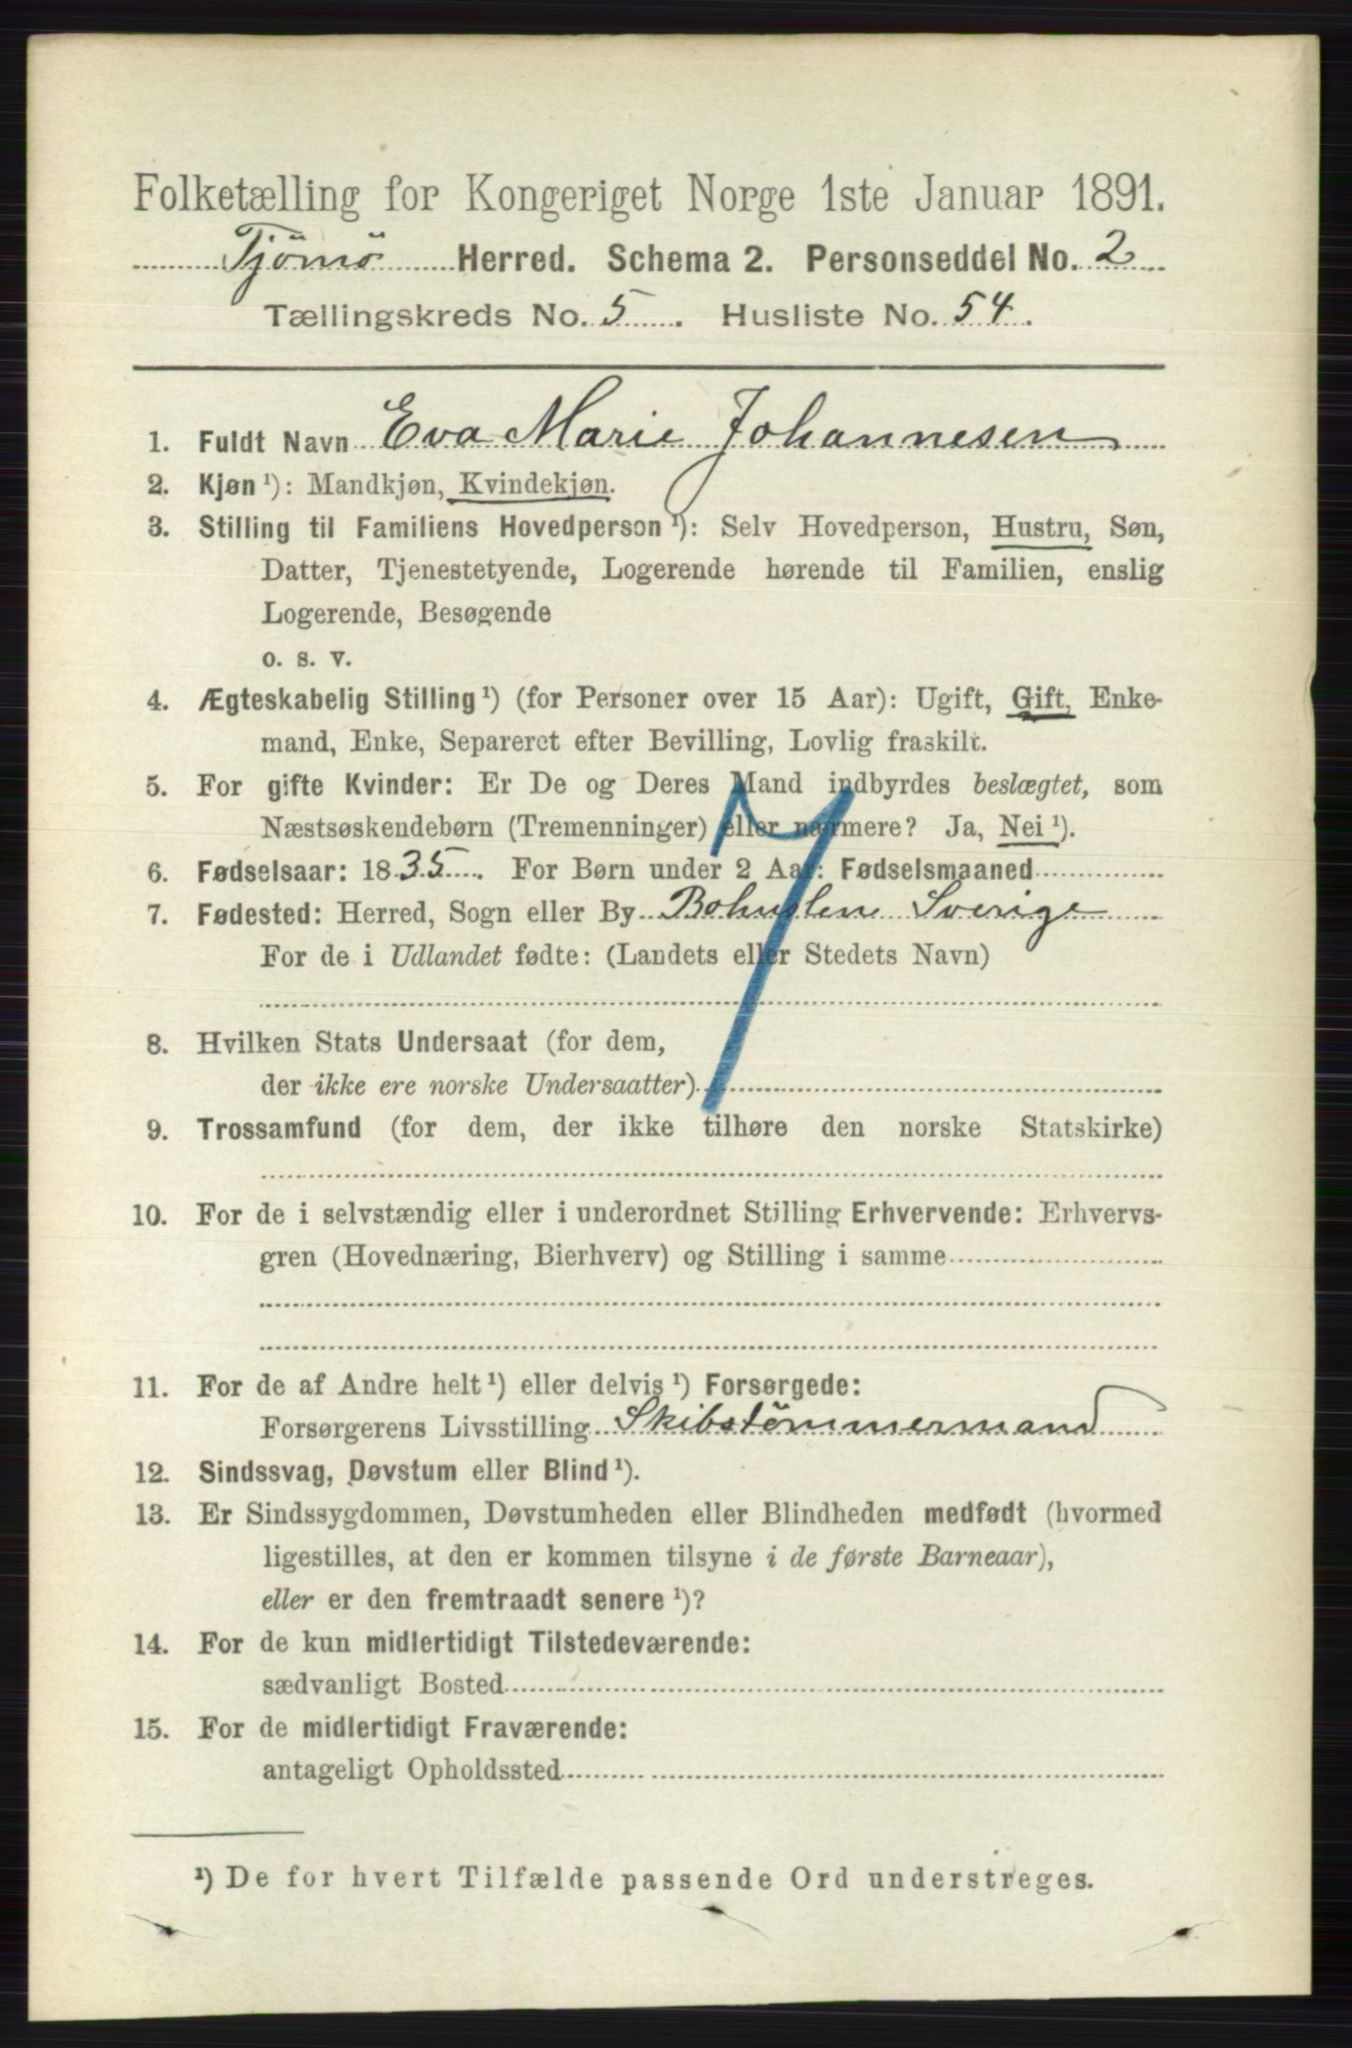 Folketælling for Kongeriget Norge 1ste Januar 1891.
Tjömö Herred. Schema 2. Personseddel No. 2
Tællingskreds No. 5. Husliste No. 54.
1. Fuldt Navn Eva Marie Johannesen
2. Kjøn ¹): Mandkjøn, Kvindekjøn.
3. Stilling til Familiens Hovedperson ¹): Selv Hovedperson, Hustru, Søn,
Datter, Tjenestetyende, Logerende hørende til Familien, enslig
Logerende, Besøgende
o. s. v.
4. Ægteskabelig Stilling ¹) (for Personer over 15 Aar): Ugift, Gift, Enke-
mand, Enke, Separeret efter Bevilling, Lovlig fraskilt.
5. For gifte Kvinder: Er De og Deres Mand indbyrdes beslægtet, som
Næstsøskendebørn (Tremenninger) eller nærmere? Ja, Nei ¹).
6. Fødselsaar: 1835. For Børn under 2 Aar: Fødselsmaaned
7. Fødested: Herred, Sogn eller By Bohuslen Sverige
For de i Udlandet fødte: (Landets eller Stedets Navn)
8. Hvilken Stats Undersaat (for dem,
der ikke ere norske Undersaatter)
9. Trossamfund (for dem, der ikke tilhøre den norske Statskirke)
10. For de i selvstændig eller i underordnet Stilling Erhvervende: Erhvervs-
gren (Hovednæring, Bierhverv) og Stilling i samme
11. For de af Andre helt ¹) eller delvis ¹) Forsørgede:
Forsørgerens Livsstilling Skibstömmermand
12. Sindssvag, Døvstum eller Blind ¹).
13. Er Sindssygdommen, Døvstumheden eller Blindheden medfødt (hvormed
ligestilles, at den er kommen tilsyne i de første Barneaar),
eller er den fremtraadt senere ¹)?
14. For de kun midlertidigt Tilstedeværende:
sædvanligt Bosted
15. For de midlertidigt Fraværende:
antageligt Opholdssted
¹) De for hvert Tilfælde passende Ord understreges.